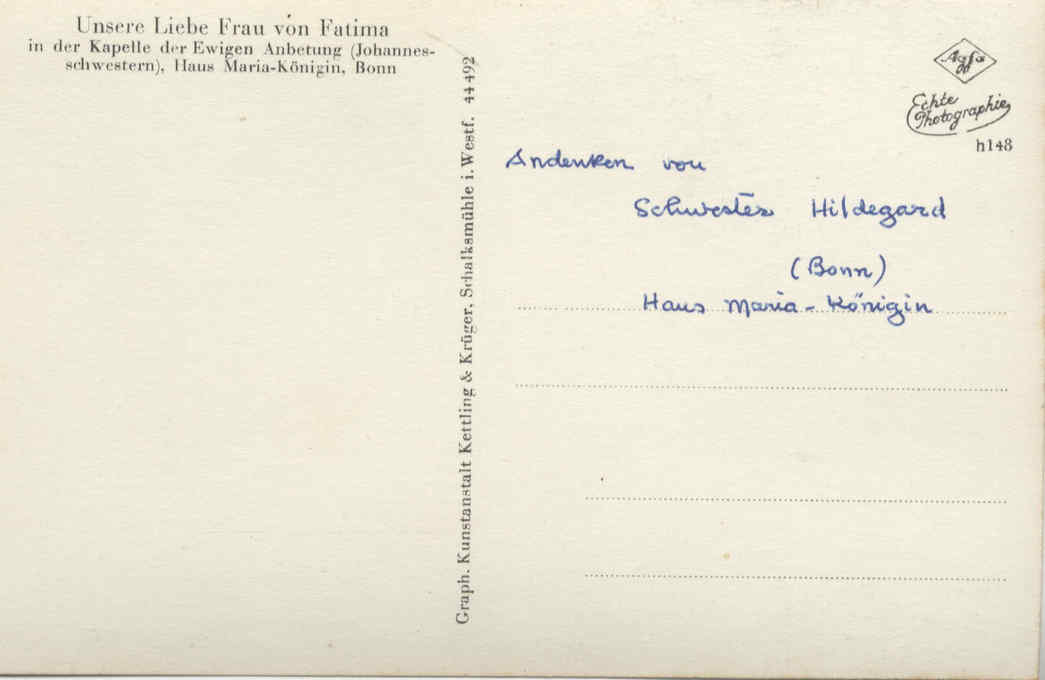 Unsere Liebe Frau von Fatima
in der Kapelle der Ewigen Anbetung (Johannes-
schwestern), Haus Maria-Königin, Bonn
Graph. Kunstanstalt Kettling & Krüger, Schalksmühle i. Westf. 44492
Agfa
Echte
Photographie
h148
Andenken von
Schwester Hildegard
(Bonn)
Haus Maria-Königin